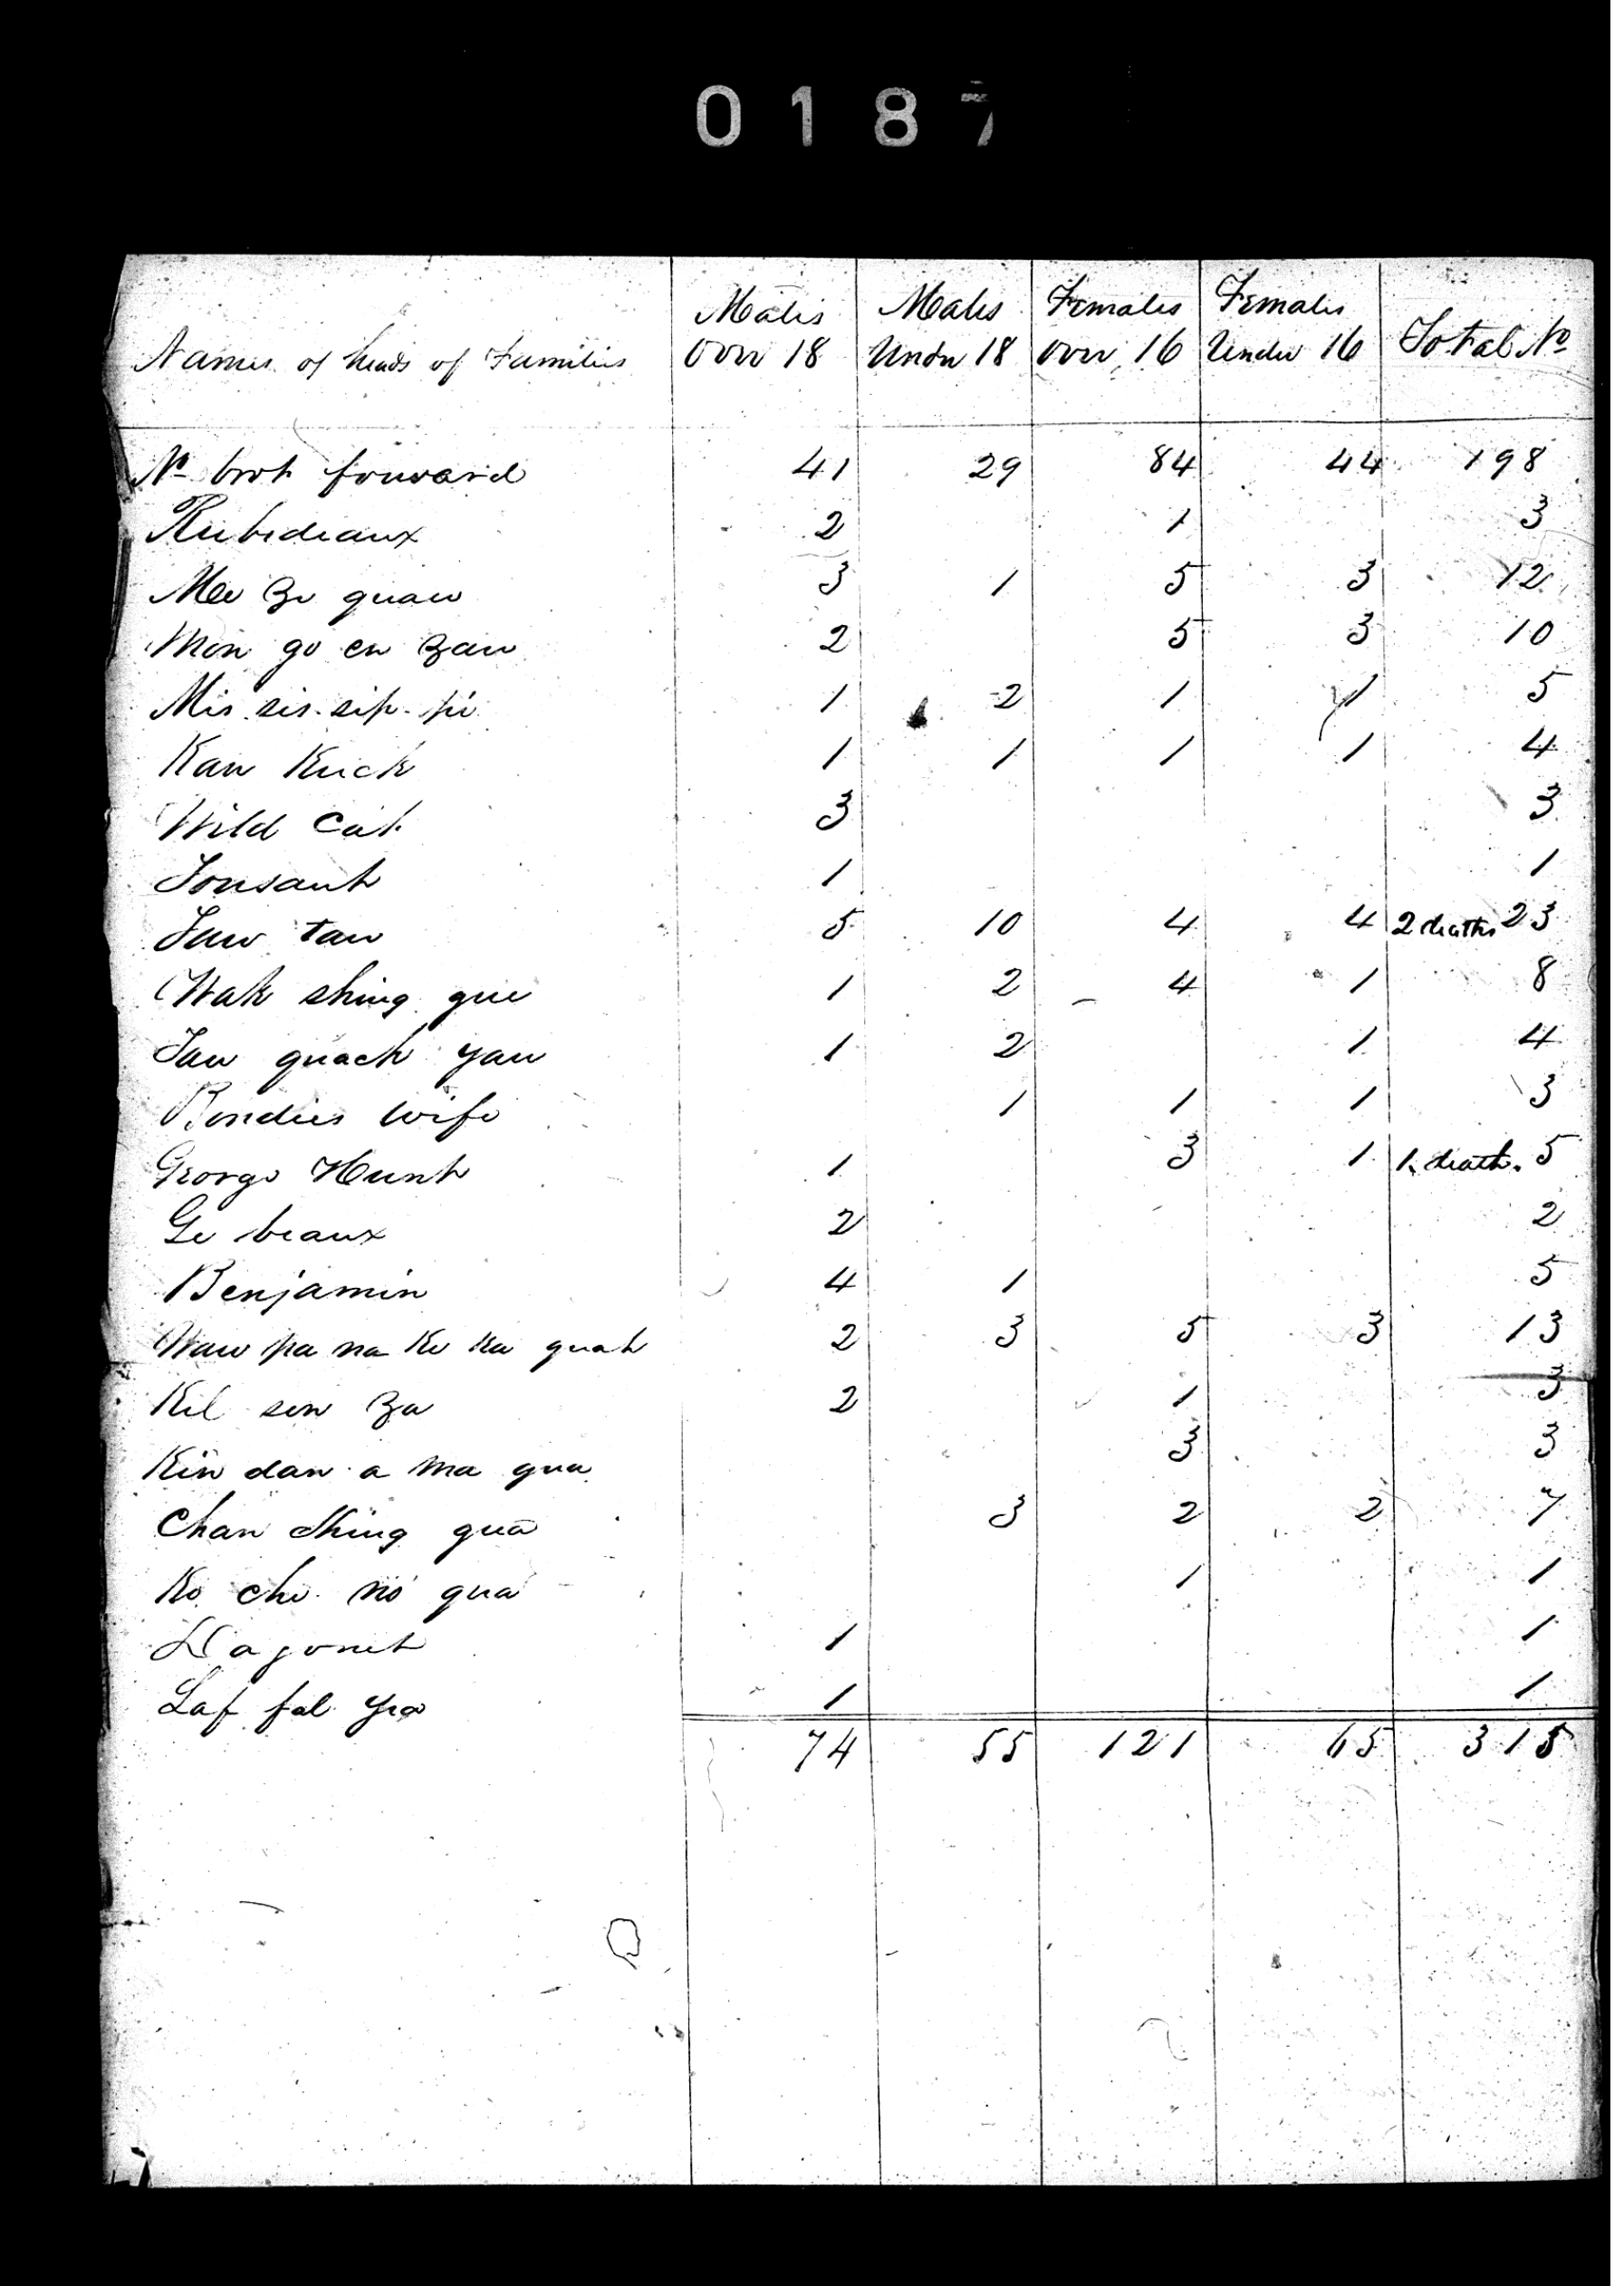 0187
Males Males Females Females
Names of heads of Families Over 18 Under 18 over 16 Under 16 Total No
No brot forward 41 29 84 44 198
Rubideaux 2 1 3
Me ze quaw 3 1 5 3 12
Mon go en zaw 2 5 3 10
Mis sis sip pi 1 2 1 1 5
Kaw Kuck 1 1 1 1 4
Wild Cat 3 3
Tousant 1 1
Taw taw 5 10 4 4 2 deaths 23
Wak shing gue 1 2 4 1 8
Taw quach yaw 1 2 1 4
Bondies wife 1 1 1 3
George Hunt 1 3 1 1 death. 5
Ge beaux 2 2
Benjamin 4 1 5
Waw pa na ke ka quah 2 3 5 3 13
Kil son za 2 1 3
Kin dan a ma qua 3 3
Chan Shing qua 3 2 2 7
Ko che no qua 1 1
Dagonet 1 1
Laf fal 1 1
74 55 121 65 315